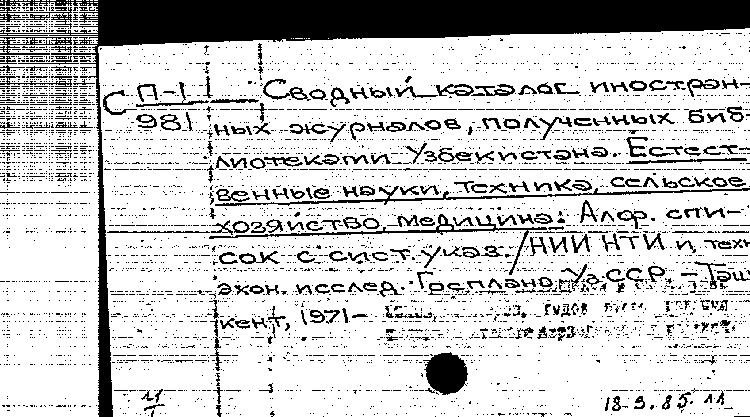 С П-1
981
Сводный каталог иностран-
ных журналов, полученных биб-
лиотеками Узбекистана. Естест-
венные науки, техника, сельское
хозяйство, медицина: Алф. спи-
сок с сист. указ. /НИИ НТИ и техн
экон. исслед. Госплана Уз.ССР. - Таш
кент, 1971-
11
18.9.85. 11